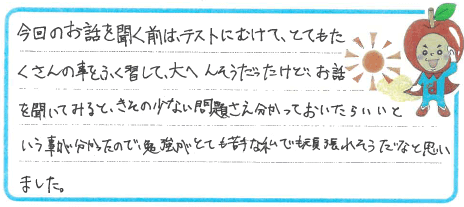 今回のお話を聞く前は、テストにむけて、とてもた
くさんの事をふく習して、大へんそうだったけど、お話
を聞いてみると、きその少ない問題さえ分かっておいたらいいと
いう事が分かったので、勉強がとても苦手な私でも頑張れそうだなと思い
ました。